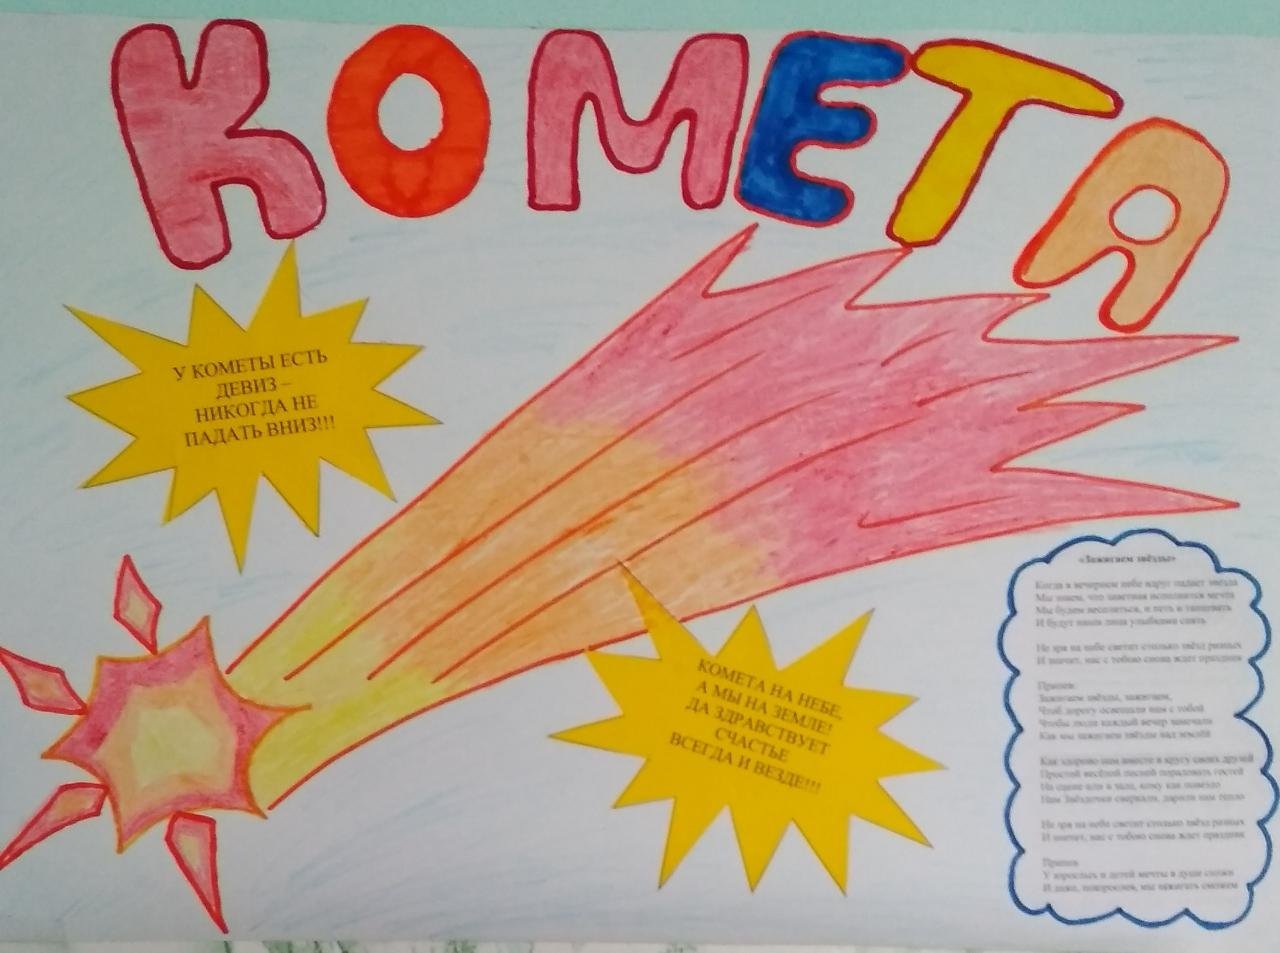 КОМЕТА
У КОМЕТЫ ЕСТЬ
ДЕВИЗ –
НИКОГДА НЕ
ПАДАТЬ ВНИЗ!!!
КОМЕТА НА НЕБЕ,
А МЫ НА ЗЕМЛЕ!
ДА ЗДРАВСТВУЕТ
СЧАСТЬЕ
ВСЕГДА И ВЕЗДЕ!!!
«Зажигаем звёзды»
Когда в вечернем небе вдруг падает звезда
Мы знаем, что заветная исполнится мечта
Мы будем веселиться, и петь и танцевать
И будут наши лица улыбками сиять
Не зря на небе светит столько звёзд разных
И значит, нас с тобою снова ждет праздник
Припев:
Зажигаем звёзды, зажигаем,
Чтоб дорогу освещали нам с тобой
Чтобы люди каждый вечер замечали
Как мы зажигаем звёзды над землёй
Как здорово нам вместе в кругу своих друзей
Простой весёлой песней порадовать гостей
На сцене или в зале, кому как повезло
Нам Звёздочки сверкали, дарили нам тепло
Не зря на небе светит столько звёзд разных
И значит, нас с тобою снова ждет праздник
Припев
У взрослых и детей мечты в душе схожи
И даже, повзрослев, мы зажигать сможем